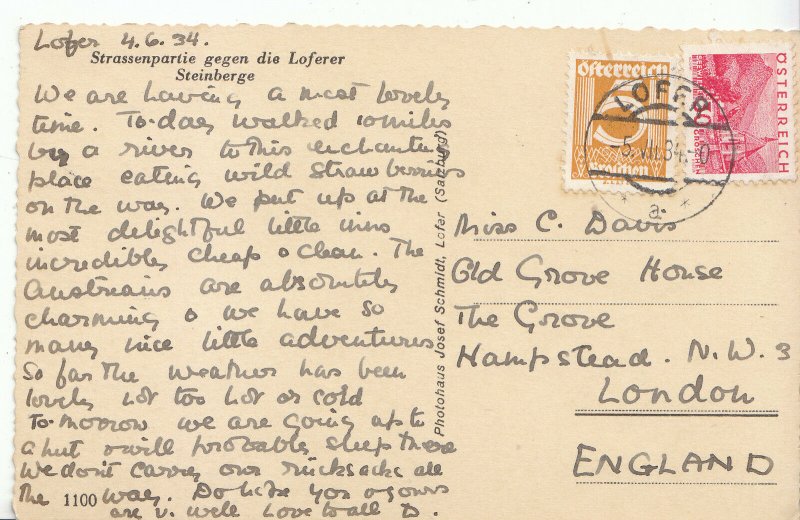 Lofer 4.6.34.
Strassenpartie gegen die Loferer
Steinberge
We are having a most lovely
time. To-day walked 10 miles
by a river to this enchanting
place eating wild strawberries
on the way. We put up at the
most delightful little inns
incredibly cheap & clean. The
Austrians are absolutely
charming & we have so
many nice little adventures
So far the weather has been
lovely not too hot or cold
To-morrow we are going up to
a hut & will probably sleep there
We don't carry our rücksacks all
the way. Do hope you & yours
are v. well Love to all D.
1100
Photohaus Josef Schmidt, Lofer (Salzburg)
Österreich
5
ÖSTERREICH
GROSCHEN
LOFER
a
Miss C. Davis
Old Grove House
The Grove
Hampstead. N.W.3
London
ENGLAND